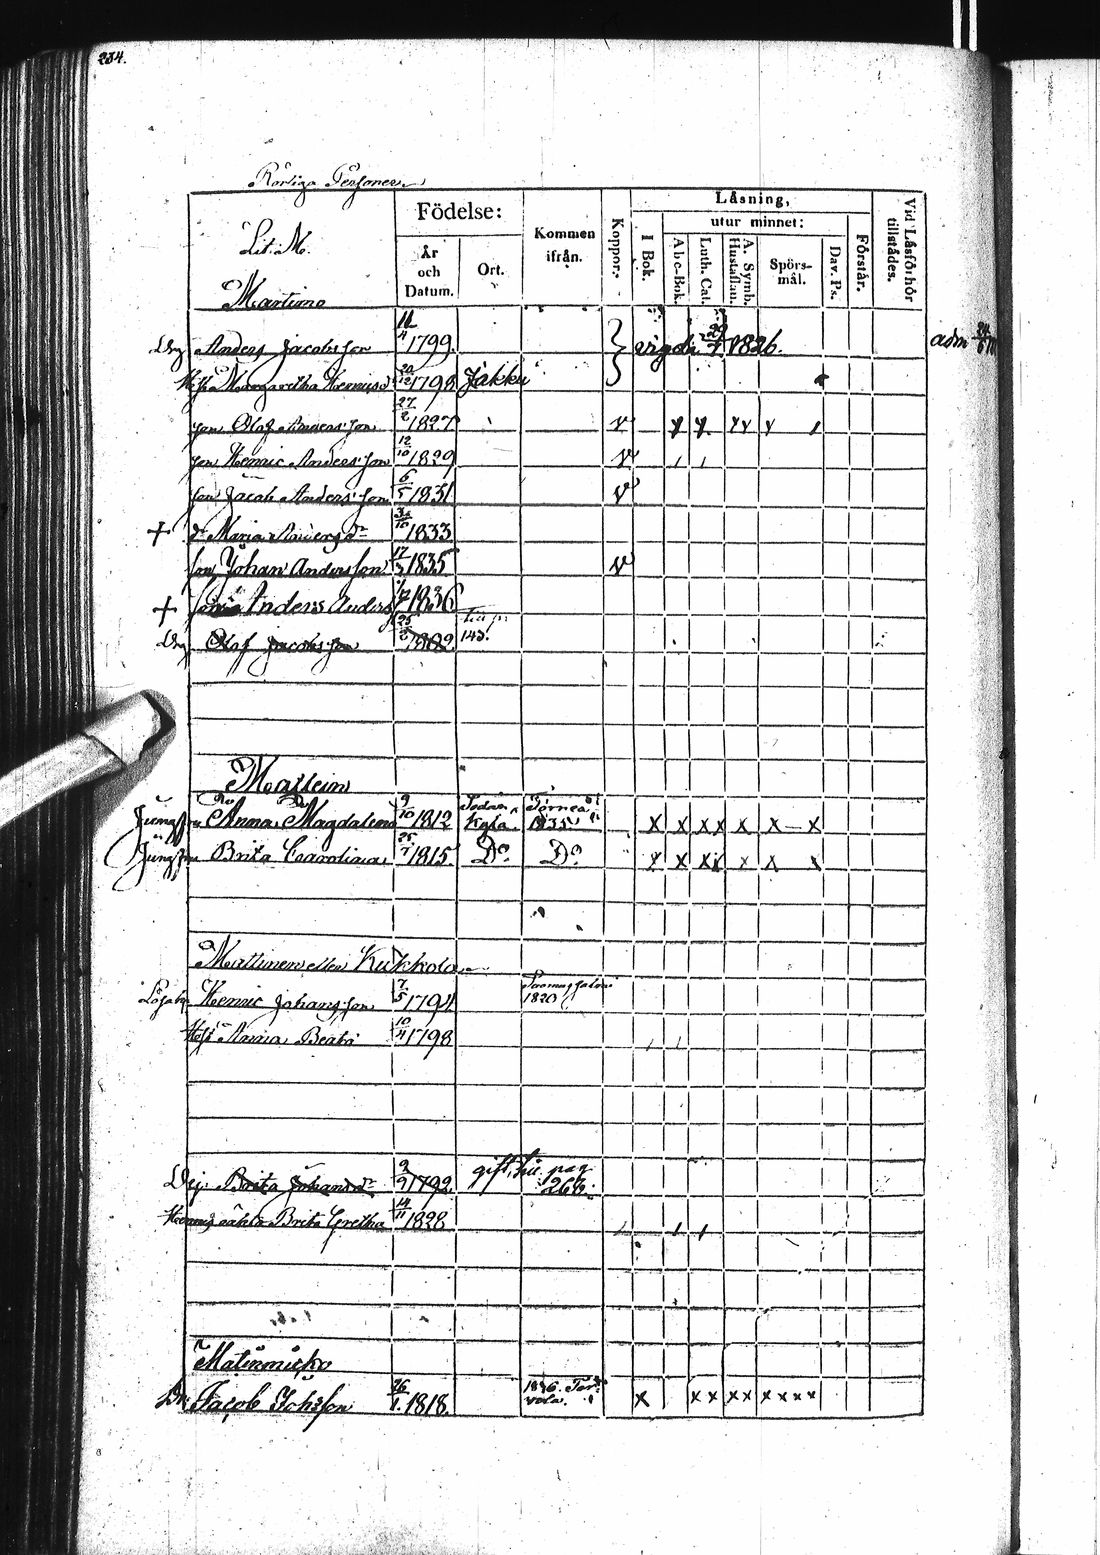 234.
Rörliga Personer
Läsning,
Födelse:
utur minnet:
Lit. M.
Kommen ifrån.
Koppor.
I Bok.
Abc-Bok.
Luth. Cat.
A. Symb. Hustaflan.
Spörs-mål.
Dav. Ps.
Förstår.
Vid Läsförhör tillstådes.
År och Datum.
Ort.
Martimo
Drg Anders Jacobsson 11/4 1799. vigde 1826. adm
Margaretha Henricsd 20/12 1798 Jakku
son Olof Andersson 27/2 1827 v x x x x x
son Henric Andersson 12/10 1829 v
son Jacob Andersson 6/5 1831 v
+ dr Maria Andersdr 1833
son Johan Andersson 17/3 1835 v
+ son Anders Anders 1836
Drg Olof Jacobsson 25/2 1802. 143.
Mattein
Jungfru Anna Magdalena 9/10 1812 Kyla Torneå 1835 x x x x x x — x
Jungfru Brita Carolina 25/7 1815 Do Do x x x x x x x
Mattinen eller Kukkola
Henric Johansson 7/5 1794. 1820
Anna Beata 10/4 1798
Brita Johansdr 9/9 1792. gift, pag 268.
oäkta Brita Gretha 14/11 1828
Matinmicko
Dr Jacob Johsson 26/1. 1818. 1836. Tervola. x x x x x x x x x